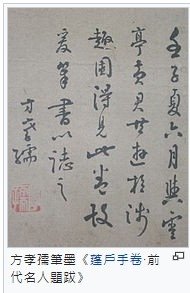 壬子夏六月與雲
亭黃君共遊於涉
趣園得見此卷故
爰筆書以誌之
方孝孺
方孝孺筆墨《蓬戶手卷·前
代名人題跋》